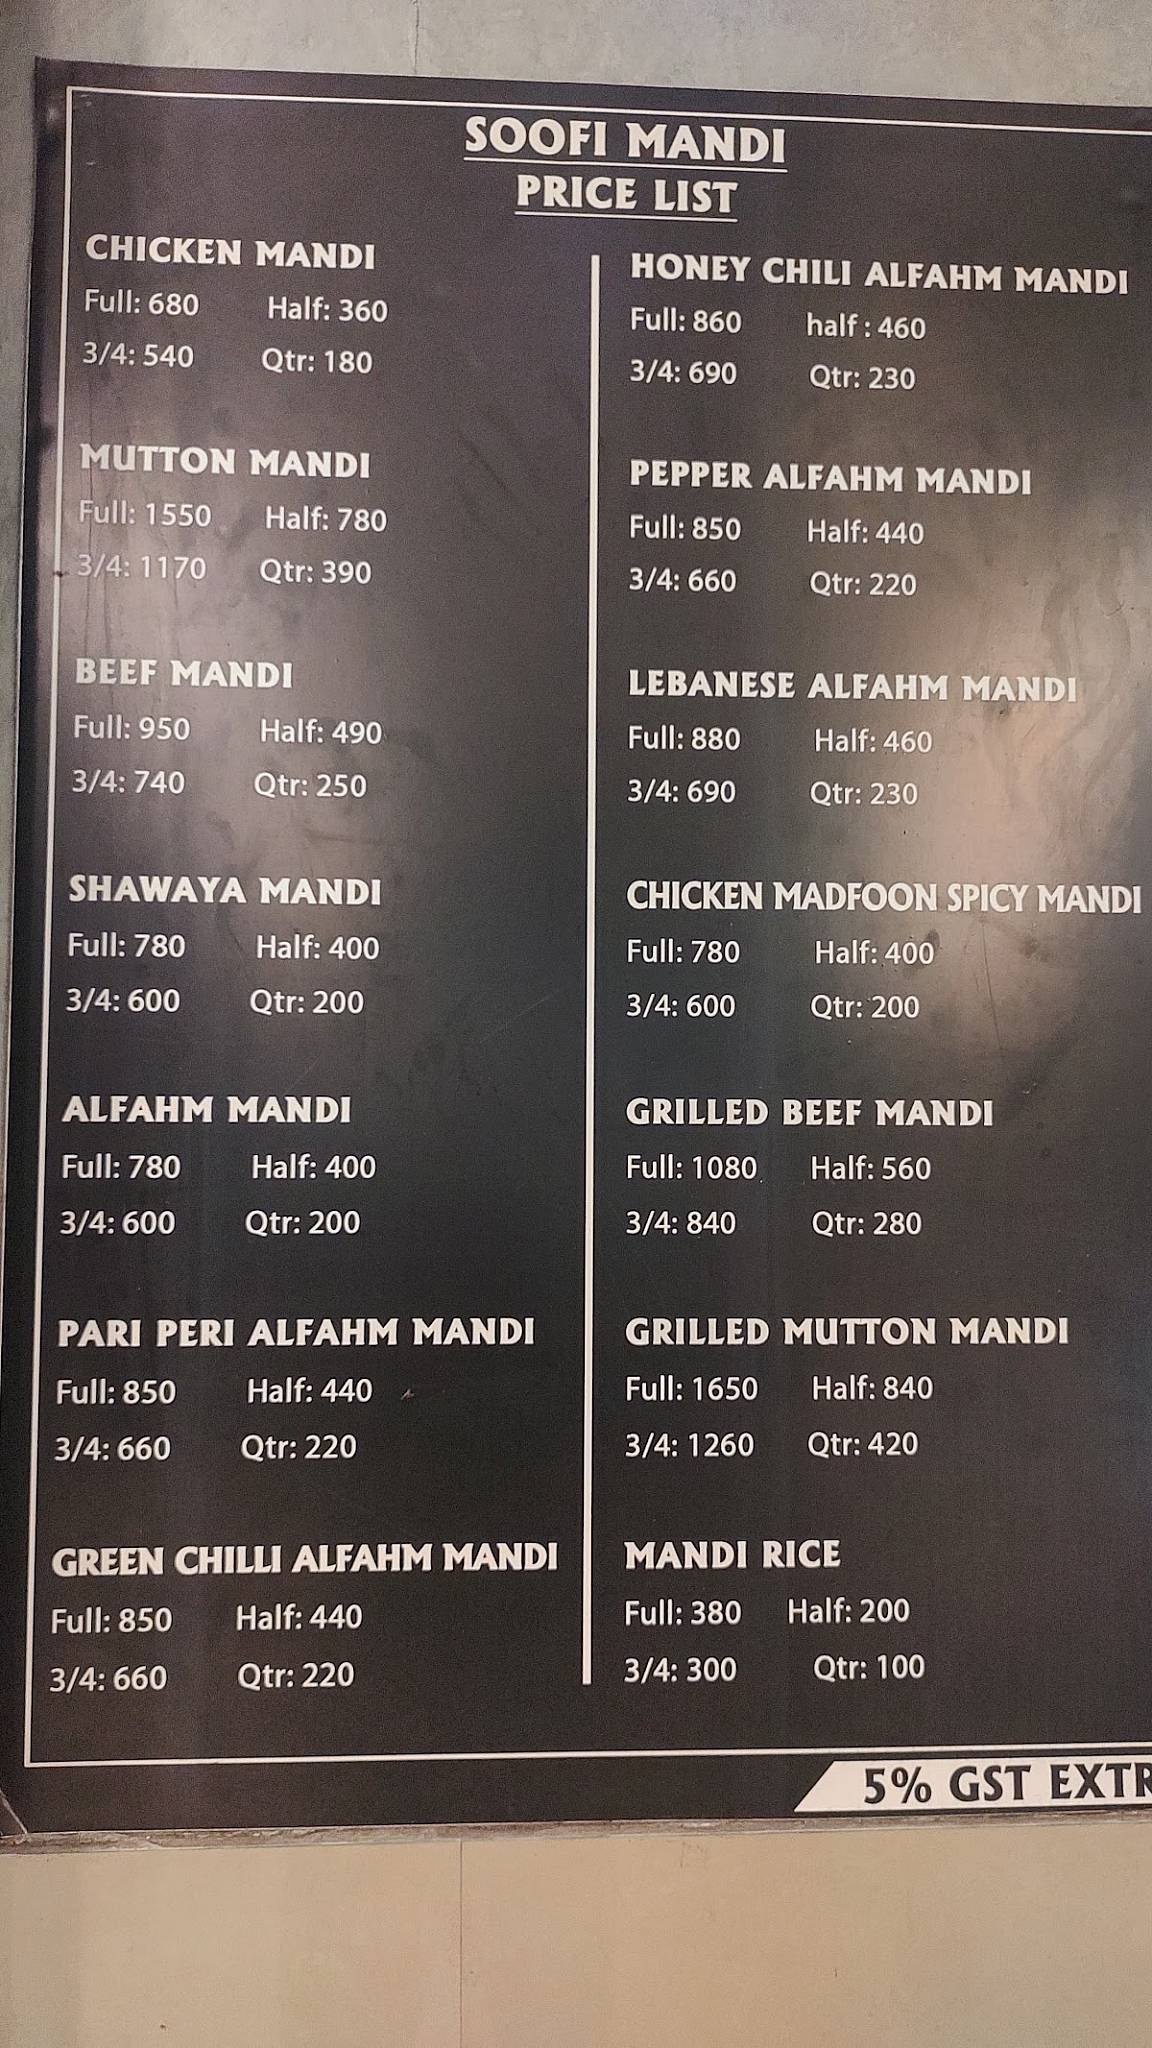 SOOFI MANDI
PRICE LIST
CHICKEN MANDI
Full: 680 Half: 360
3/4: 540 Qtr: 180
MUTTON MANDI
Full: 1550 Half: 780
3/4: 1170 Qtr: 390
BEEF MANDI
Full: 950 Half: 490
3/4: 740 Qtr: 250
SHAWAYA MANDI
Full: 780 Half: 400
3/4: 600 Qtr: 200
ALFAHM MANDI
Full: 780 Half: 400
3/4: 600 Qtr: 200
PARI PERI ALFAHM MANDI
Full: 850 Half: 440
3/4: 660 Qtr: 220
GREEN CHILLI ALFAHM MANDI
Full: 850 Half: 440
3/4: 660 Qtr: 220
HONEY CHILI ALFAHM MANDI
Full: 860 half : 460
3/4: 690 Qtr: 230
PEPPER ALFAHM MANDI
Full: 850 Half: 440
3/4: 660 Qtr: 220
LEBANESE ALFAHM MANDI
Full: 880 Half: 460
3/4: 690 Qtr: 230
CHICKEN MADFOON SPICY MANDI
Full: 780 Half: 400
3/4: 600 Qtr: 200
GRILLED BEEF MANDI
Full: 1080 Half: 560
3/4: 840 Qtr: 280
GRILLED MUTTON MANDI
Full: 1650 Half: 840
3/4: 1260 Qtr: 420
MANDI RICE
Full: 380 Half: 200
3/4: 300 Qtr: 100
5% GST EXTR